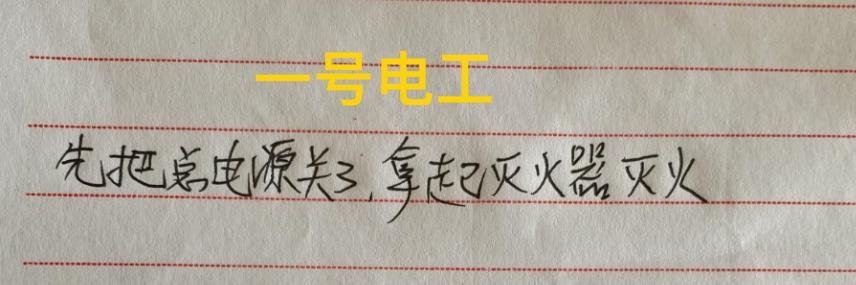 一号电工
先把总电源关了,拿起灭火器灭火